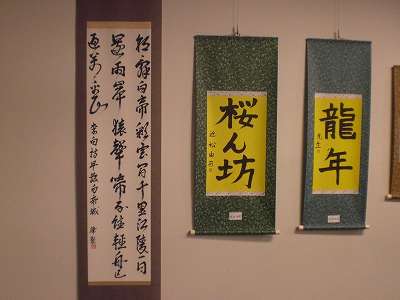 朝辭白帝彩雲間千里江陵一日
還兩岸猿聲啼不住輕舟已
過萬重山
李白詩早發白帝城
桜ん坊
龍年